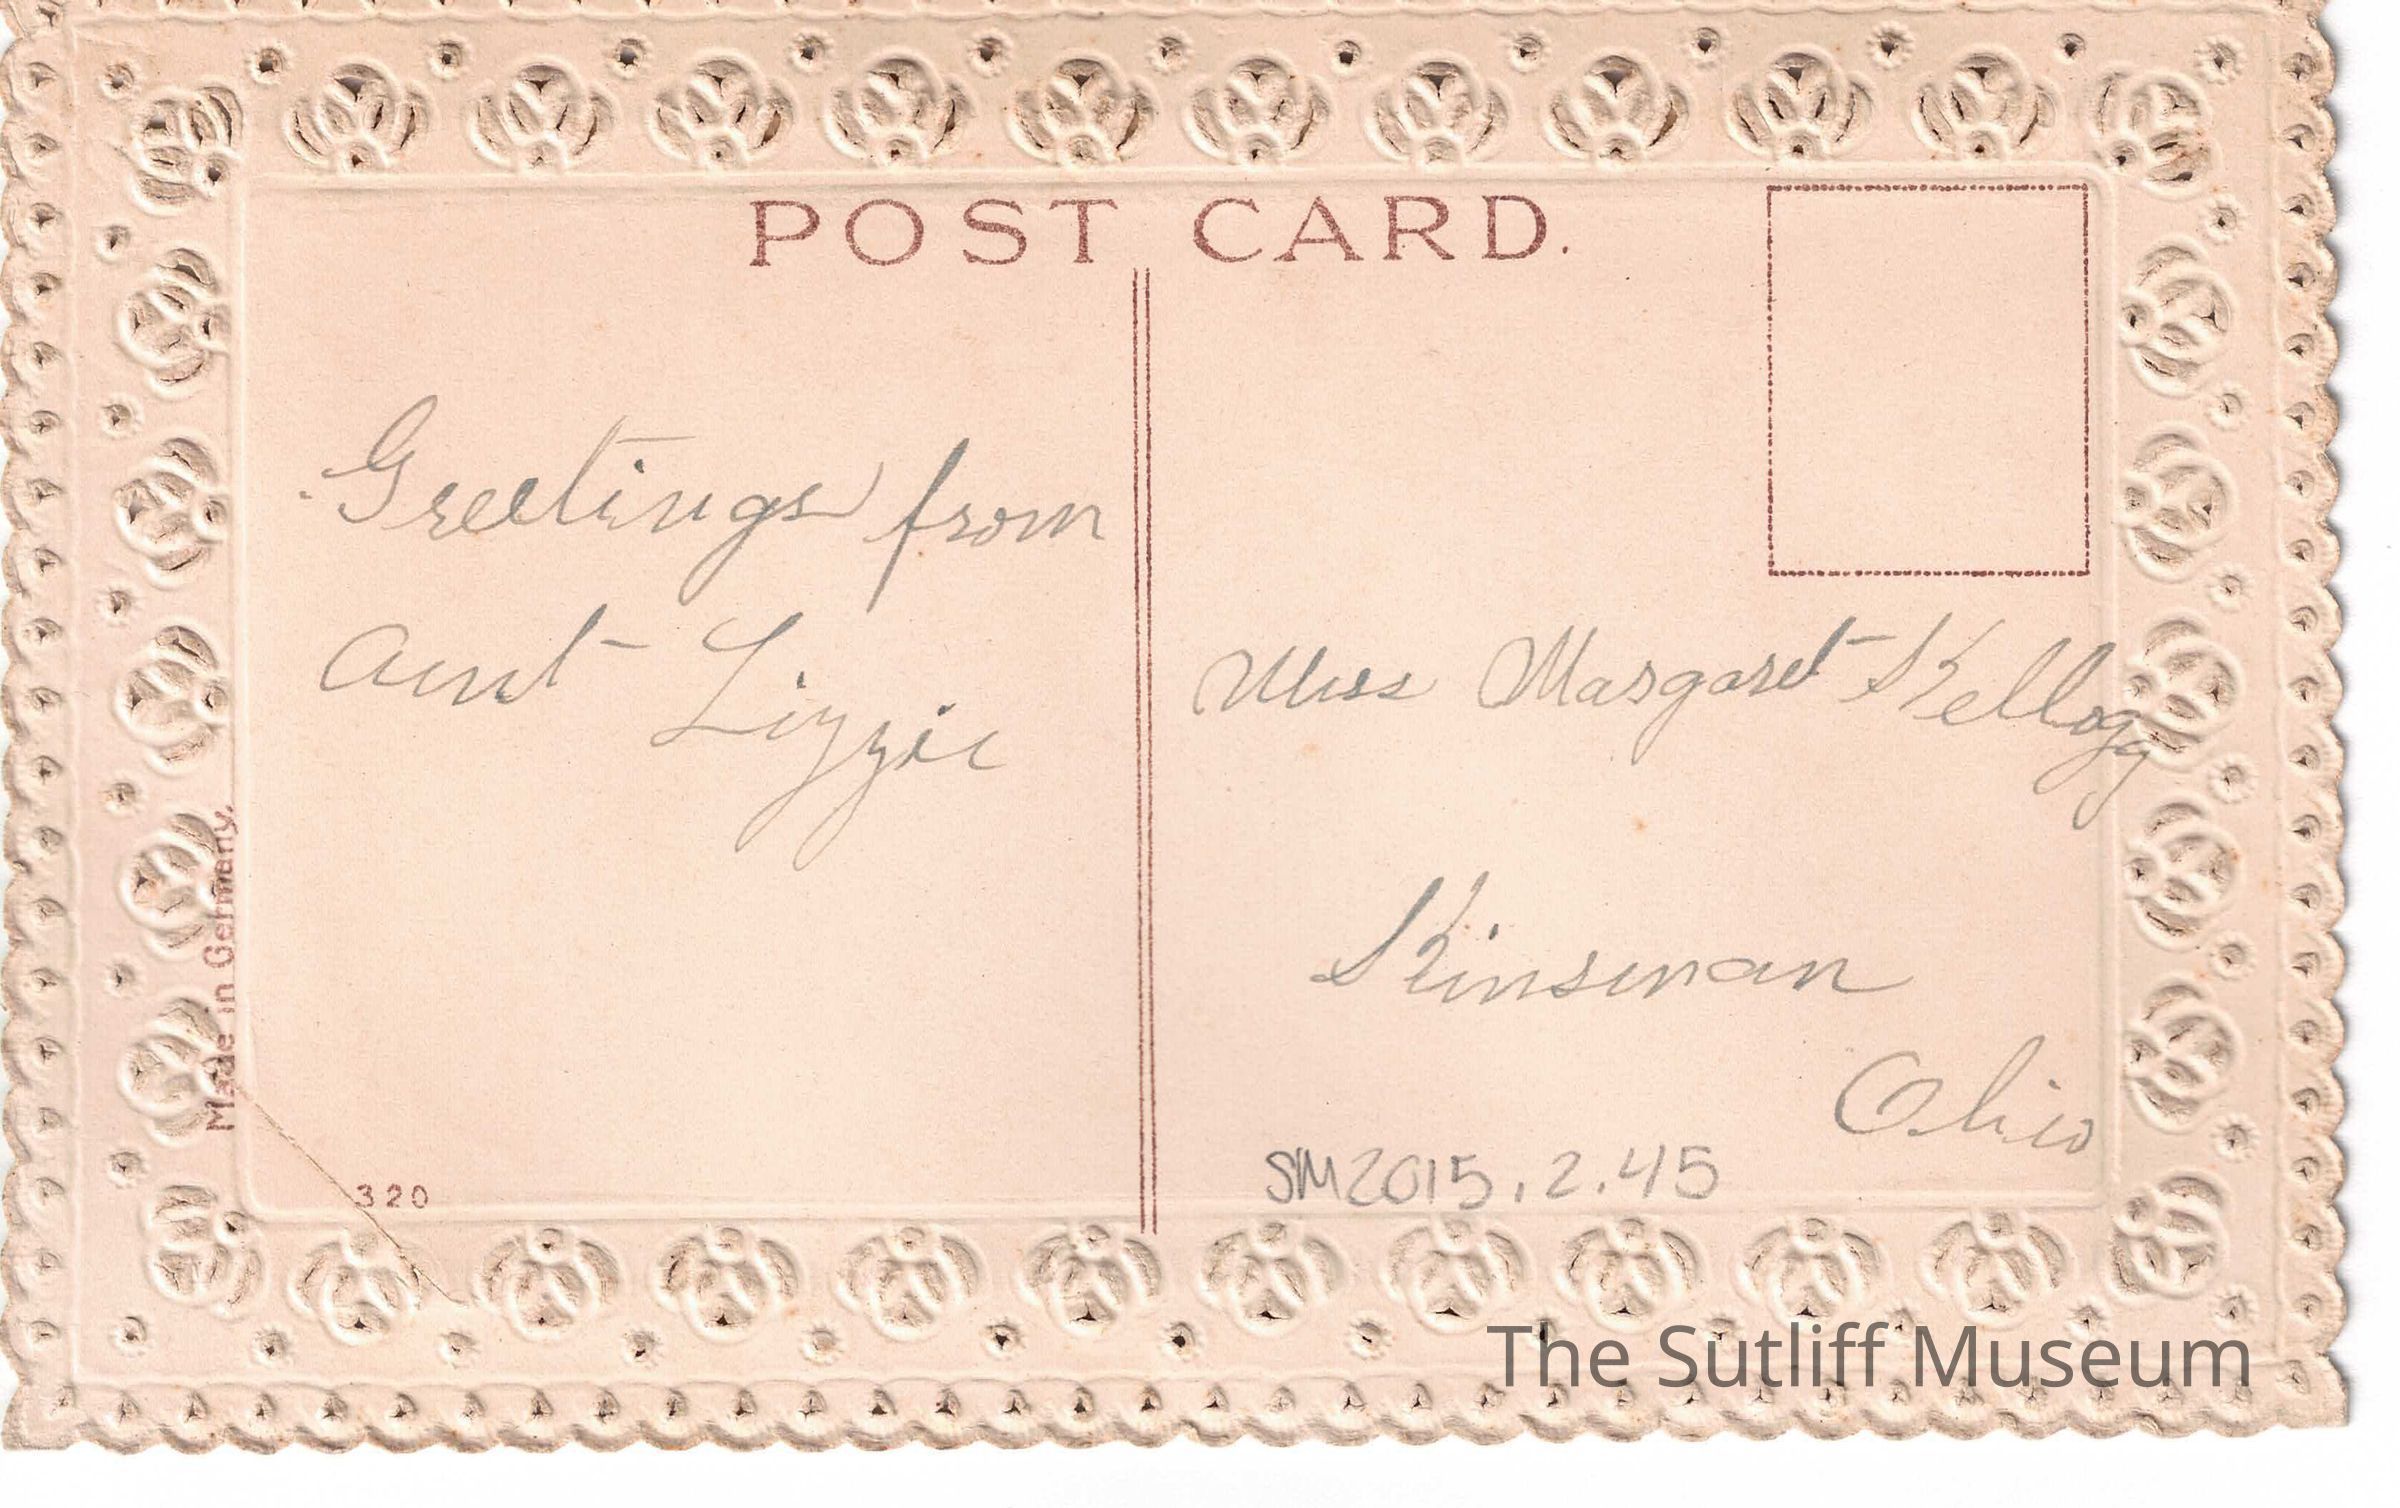 POST CARD.
Greetings from
Aunt Lizzie
Miss Margaret Kellogg
Kinsman
Ohio
SM2015.2.45
Made in Germany.
320
The Sutliff Museum